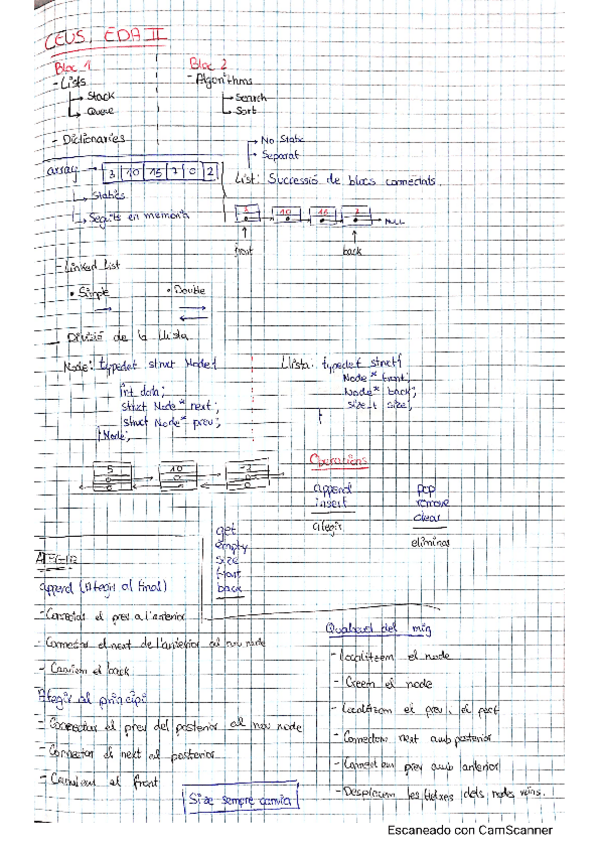 CEUS. EDA II
Bloc 1
- Lists
Stack
Queue
- Dictionaries
Bloc 2
- Algorithms
Search
Sort
array
3 10 15 7 0 2
Statics
Seguits en memoria
No Static
Separat
List: Successió de blocs connectats.
5 10 15 2 NULL
front back
- Linked List
• Simple • Double
Divisió de la llista
Node: typedef struct Node{
int data;
struct Node* next;
struct Node* prev;
}Node;
Llista: typedef struct{
Node* front;
Node* back;
size_t size;
}
5 10 -2
Operations
append
insert
afegir
pop
remove
clear
eliminar
get
empty
size
front
back
append (Afegir al final)
- Connectar el prev a l'anterior
- Connectar el next de l'anterior al nou node
- Canviem el back
Afegir al principi
- Connectar el prev del posterior al nou node
- Connectar el next al posterior
- Canviem el front
Size sempre canvia
Qualsevol del mig
- Localitzem el node
- Creem el node
- Localitzem el prev. el post
- Connectem next amb posterior
- Connectem prev amb anterior
- Desplacem les fletxes dels nodes veïns.
Escaneado con CamScanner